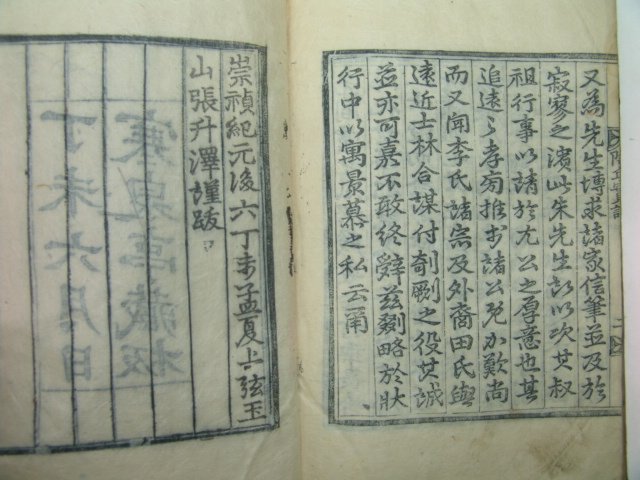 又為先生博求諸家信筆並及於
寂寥之濱此朱先生所以次其叔
祖行事以請於尤公之厚意也其
追遠之孝旁推於諸公既加歎尚
而又聞李氏諸宗及外裔田氏與
遠近士林合謀付剞劂之役其誠
並亦可嘉不敢終辭玆剟略於狀
行中以寓景慕之私云爾
崇禎紀元後六丁未孟夏上弦玉
山張升澤謹跋
丁未六月日
亭藏板